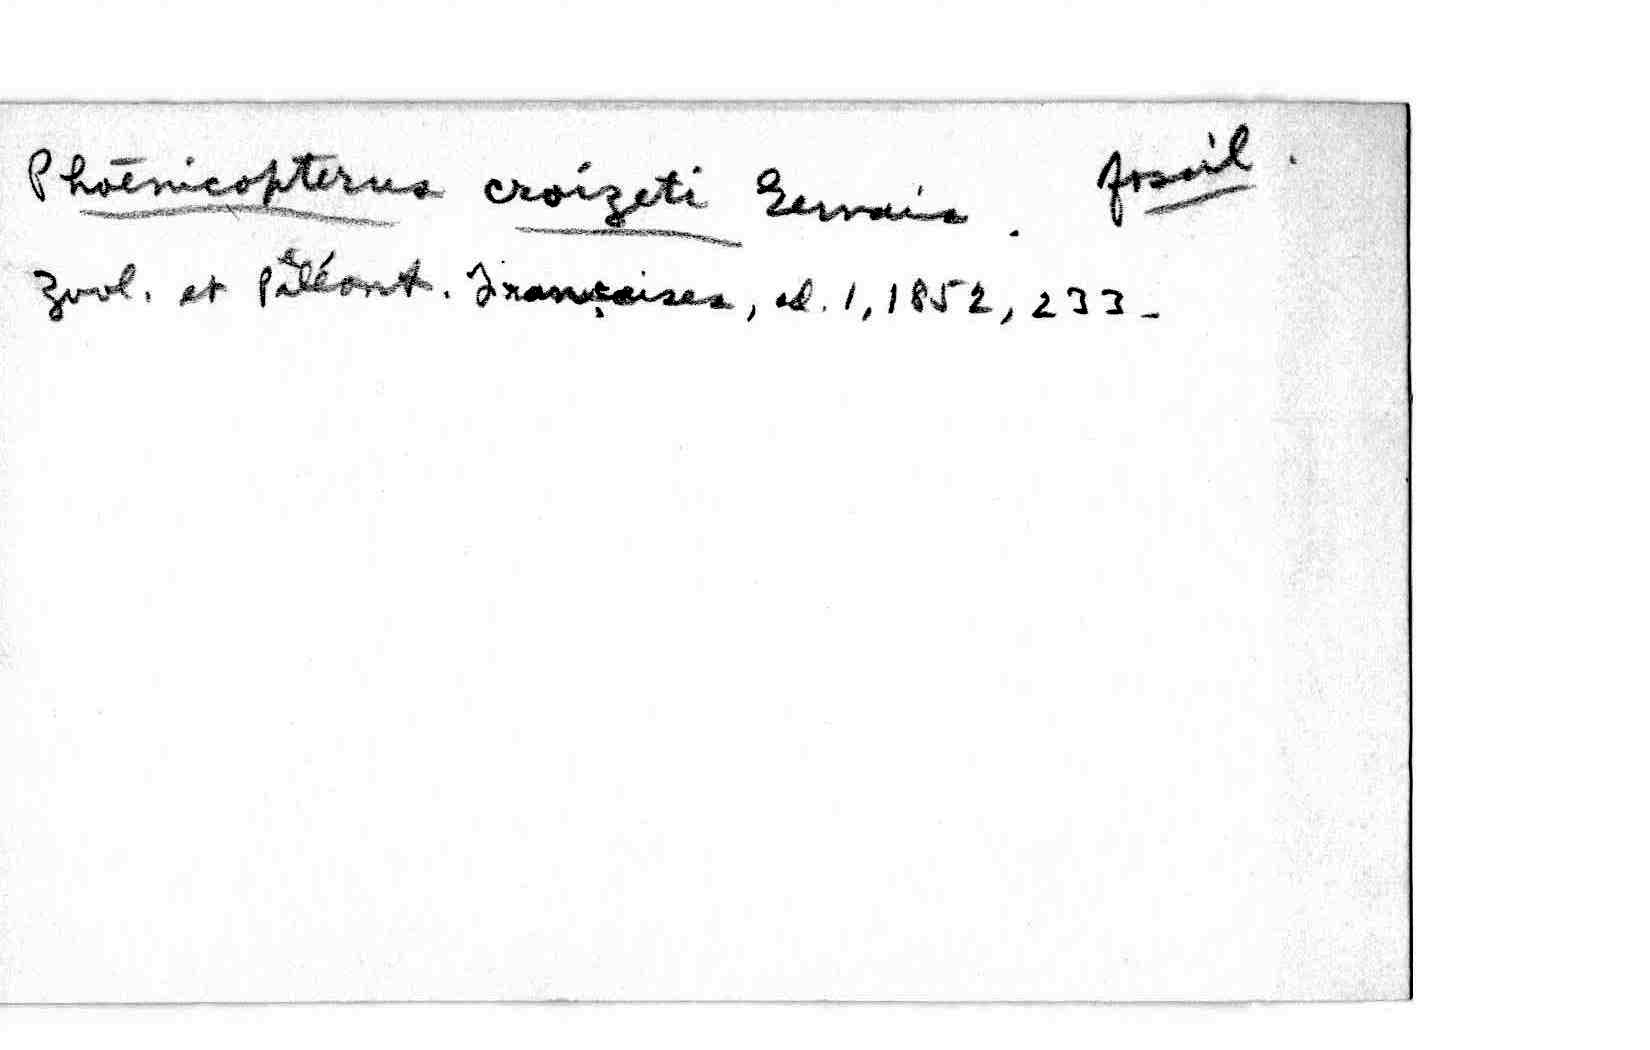 Phoenicopterus croizeti Gervais. fossil.
Zool. et Paléont. Françaises, ed. 1, 1852, 233-